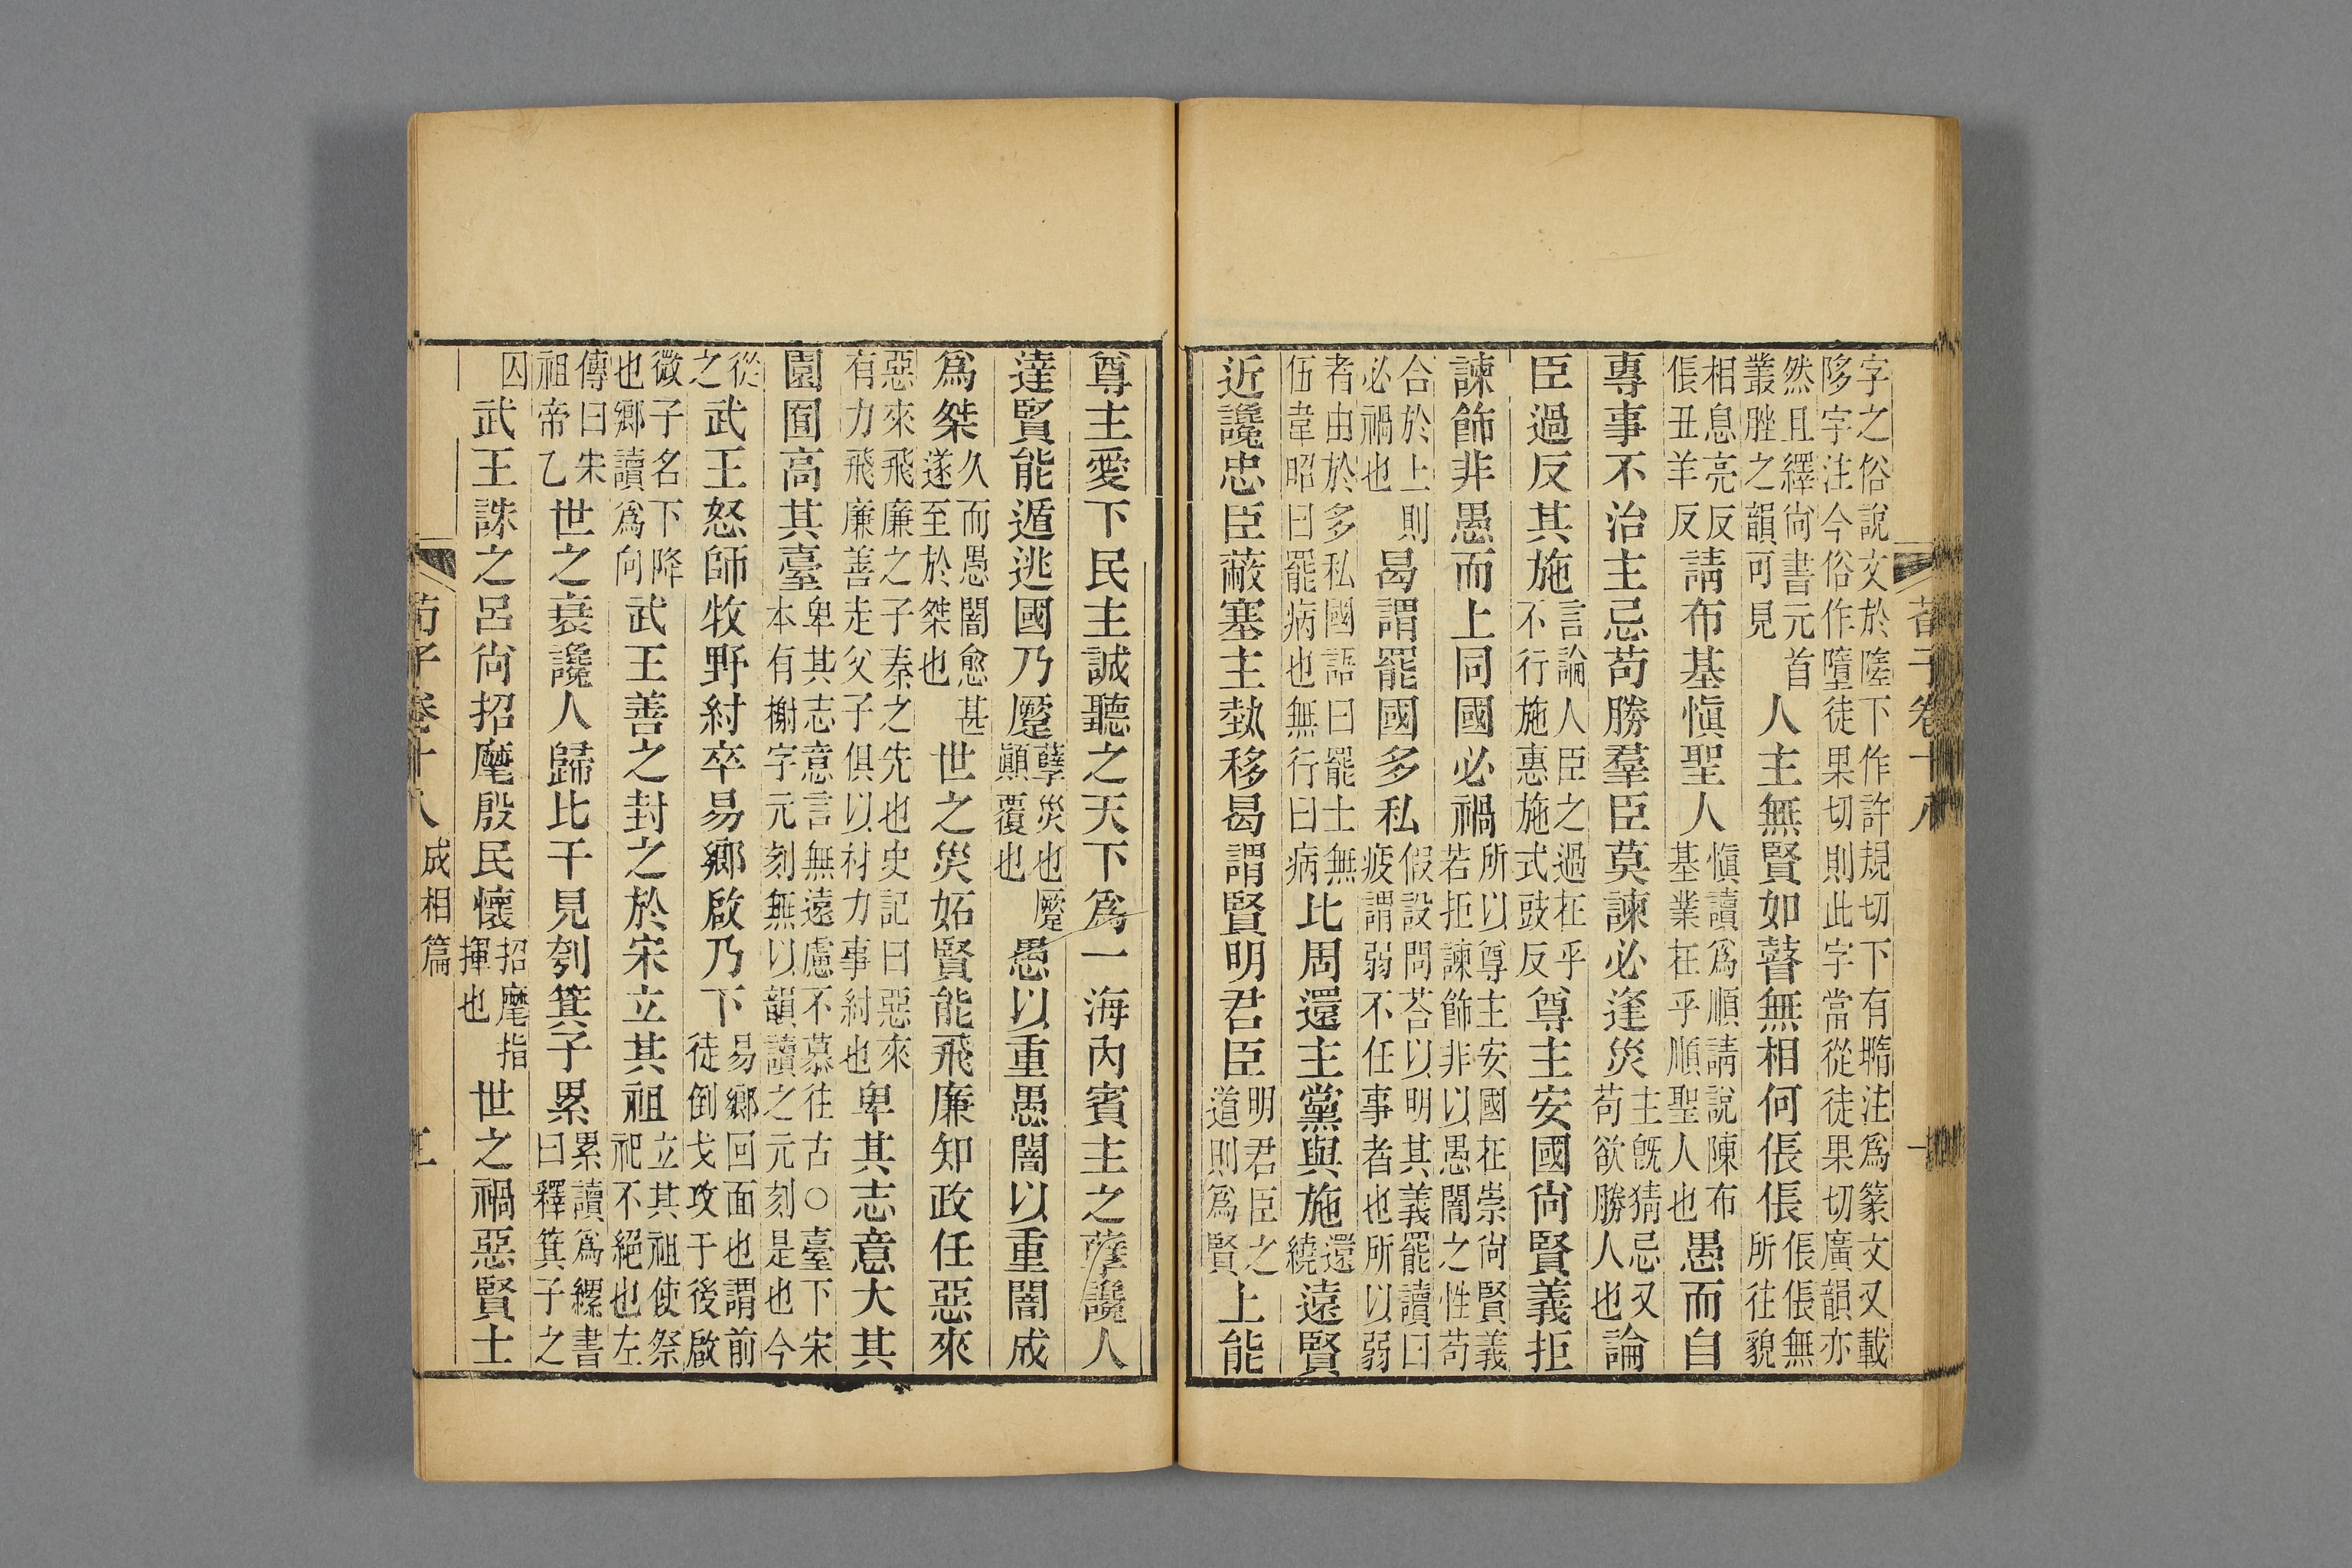 荀子卷十八 一
字之俗說文於隓下作許規切下有墯注爲篆文又載
陊字注今俗作墮徒果切則此字當從徒果切廣韻亦
然且繹尙書元首
叢脞之韻可見
人主無賢如瞽無相何倀倀
倀倀無
所往貌
相息亮反
倀丑羊反
請布基愼聖人
愼讀爲順請說陳布
基業在乎順聖人也
愚而自
專事不治主忌苟勝羣臣莫諫必逢災
主旣猜忌又
苟欲勝人也
論
臣過反其施
言論人臣之過在乎
不行施惠施式豉反
尊主安國尙賢義拒
諫飾非愚而上同國必禍
所以尊主安國在崇尙賢義
若拒諫飾非以愚闇之性苟
合於上則
必禍也
曷謂罷國多私
假設問荅以明其義罷讀曰
疲謂弱不任事者也所以弱
者由於多私國語曰罷士無
伍韋昭曰罷病也無行曰病
比周還主黨與施
還
繞
遠賢
近讒忠臣蔽塞主埶移曷謂賢明君臣
明君臣之
道則爲賢
上能
尊主愛下民主誠聽之天下爲一海內賓主之孽讒人
達賢能遁逃國乃蹷
孽災也蹷
顚覆也
愚以重愚闇以重闇成
爲桀
久而愚闇愈甚
遂至於桀也
世之災妬賢能飛廉知政任惡來
惡來飛廉之子秦之先也史記曰惡來
有力飛廉善走父子俱以材力事紂也
卑其志意大其
園囿高其臺
卑其志意言無遠慮不慕往古○臺下宋
本有榭字元刻無以韻讀之元刻是也今
從
之
武王怒師牧野紂卒易鄉啟乃下
易鄉回面也謂前
徒倒戈攻于後啟
微子名下降
也鄉讀爲向
武王善之封之於宋立其祖
立其祖使祭
祀不絕也左
傳曰宋
祖帝乙
世之衰讒人歸比干見刳箕子累
累讀爲縲書
曰釋箕子之
囚
武王誅之呂尙招麾殷民懷
招麾指
揮也
世之禍惡賢士
荀子卷十八 成相篇